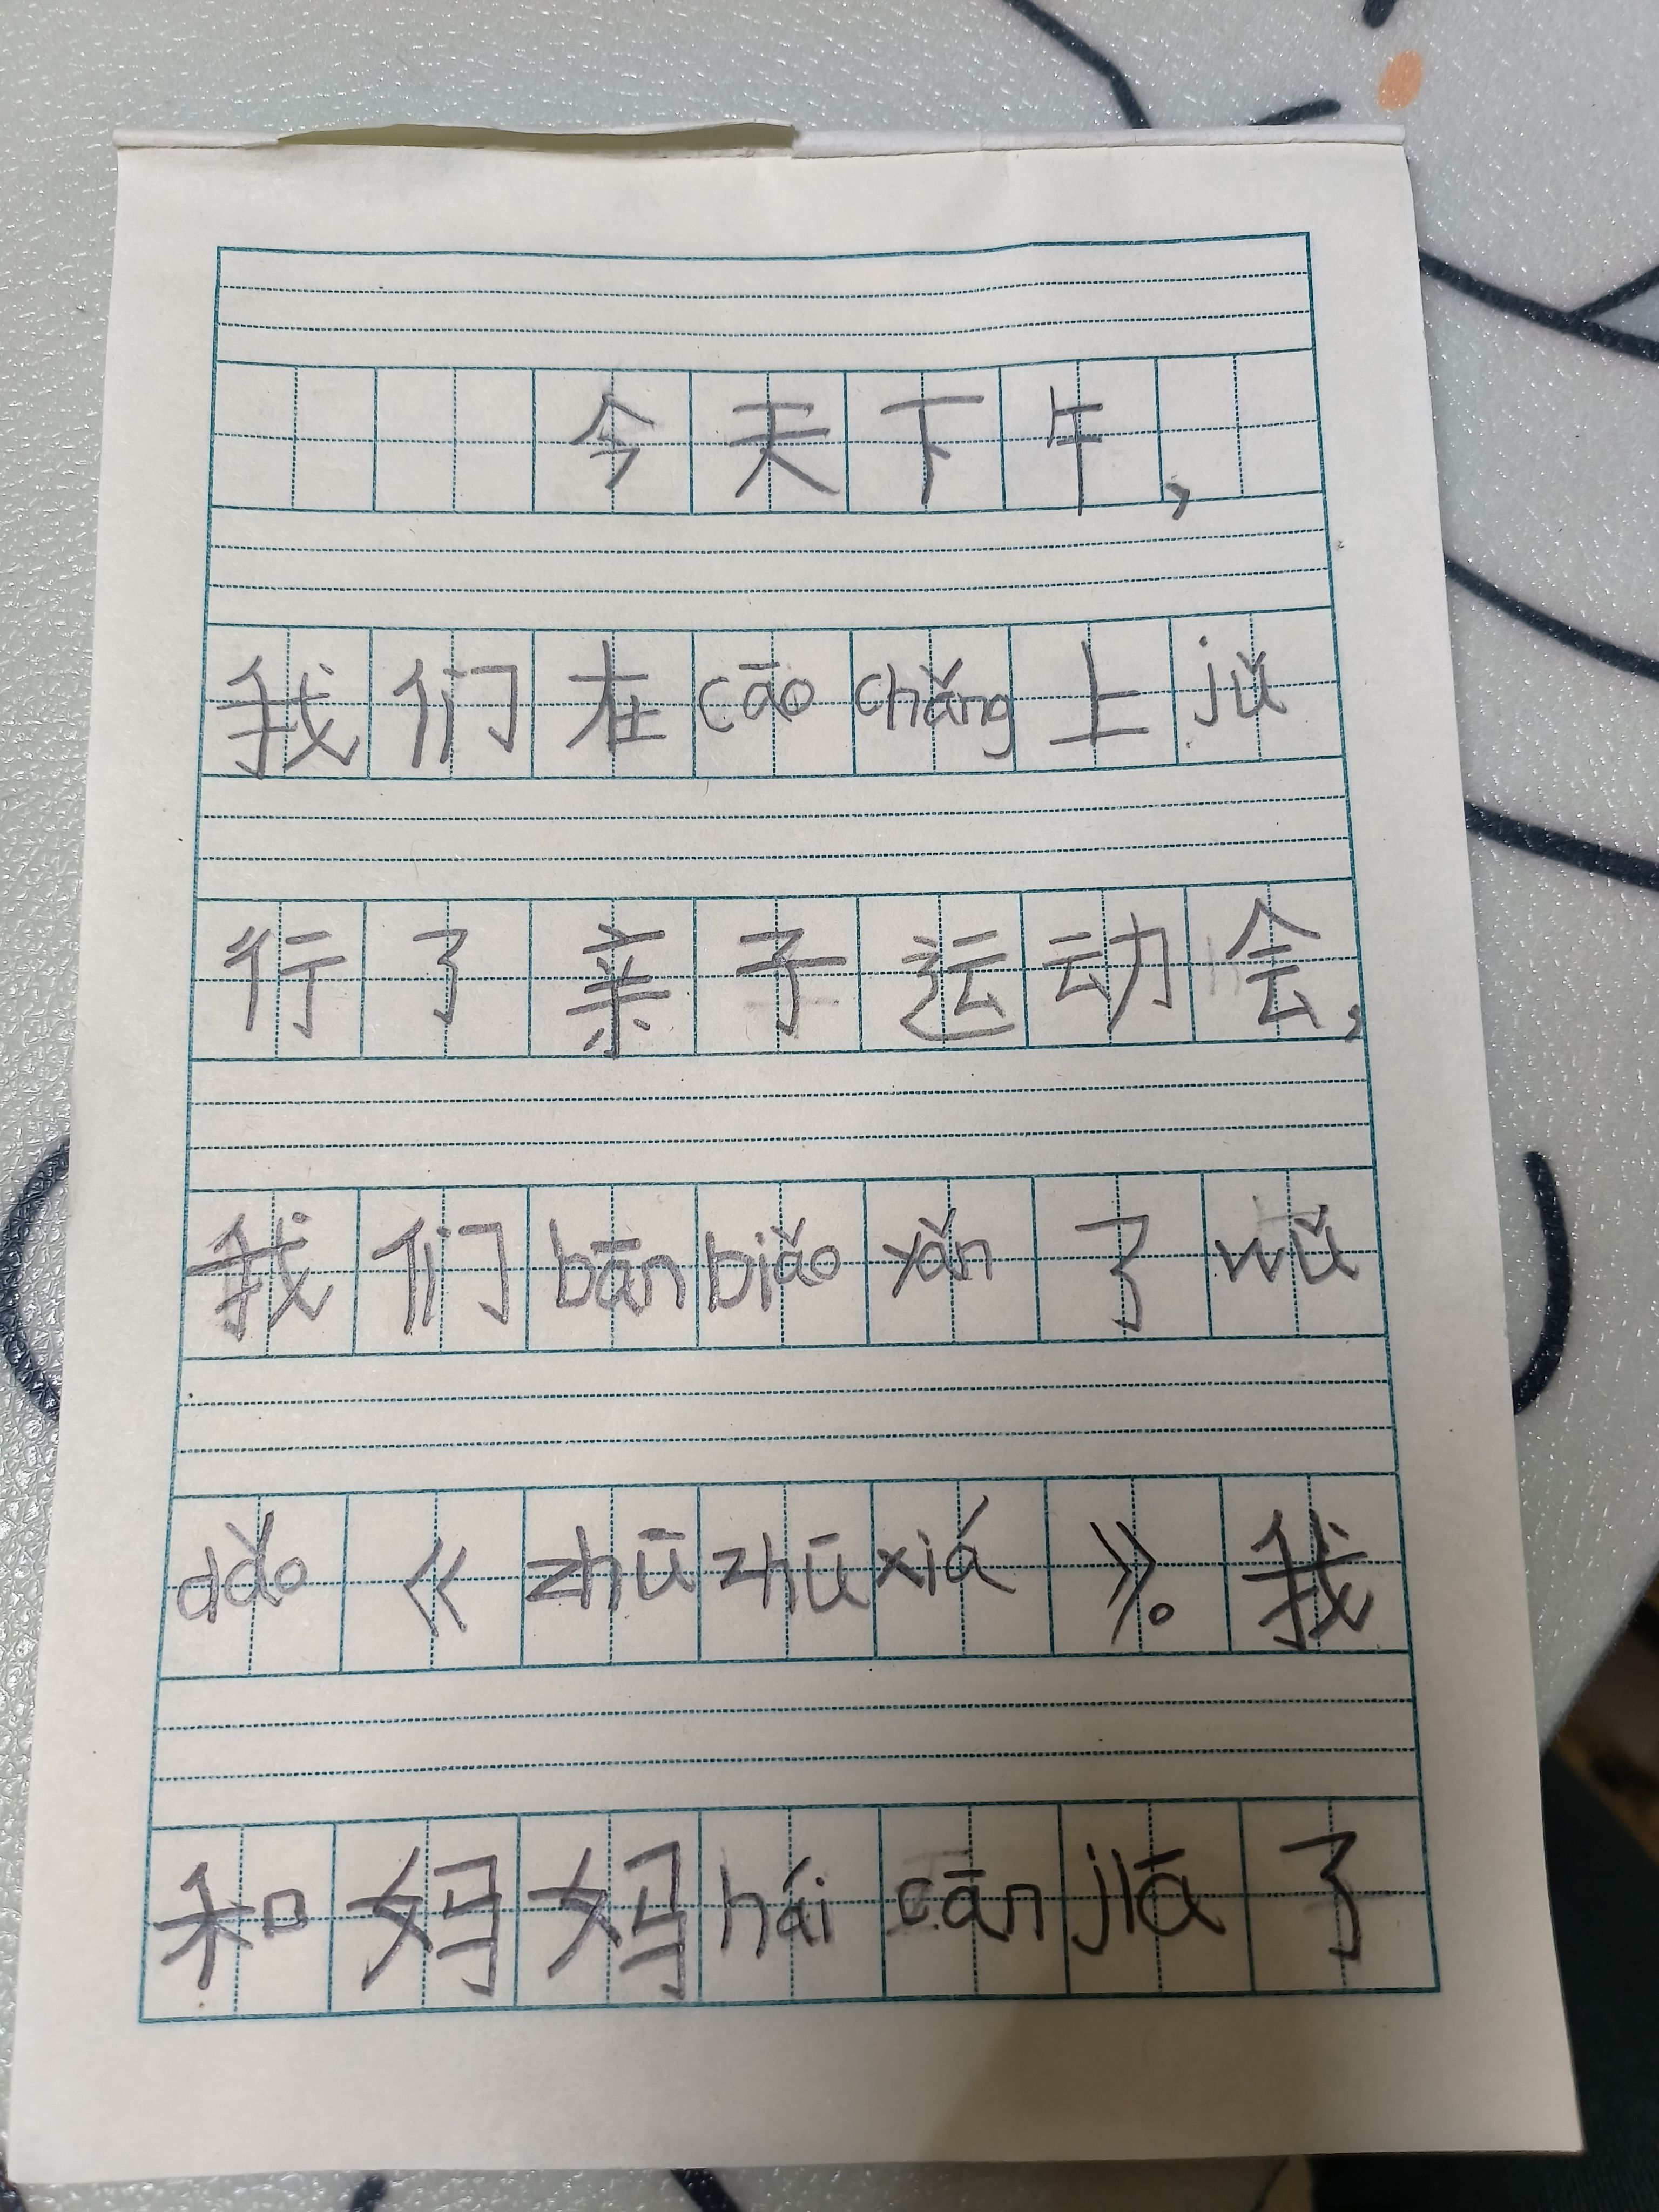 今天下午，
我们在cāo chǎng上jǔ
行了亲子运动会，
我们bān biǎo yǎn了wǔ
dǎo《zhū zhū xiá》。我
和妈妈hái cān jiā了